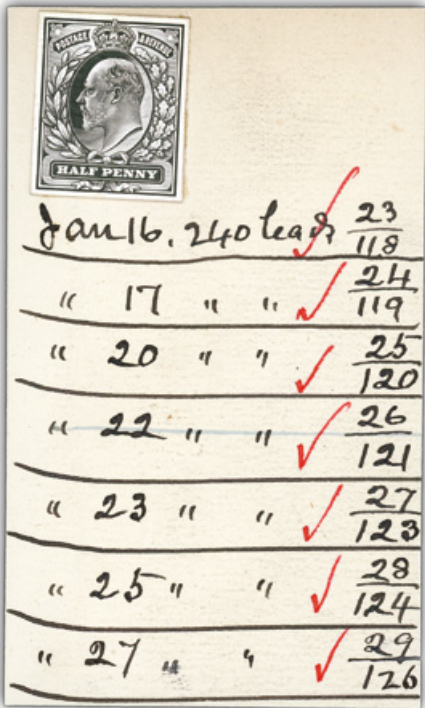 POSTAGE & REVENUE
HALF PENNY
Jan 16. 240 leads 23/118
" 17 " " 24/119
" 20 " " 25/120
" 22 " " 26/121
" 23 " " 27/123
" 25 " " 28/124
" 27 " " 29/126